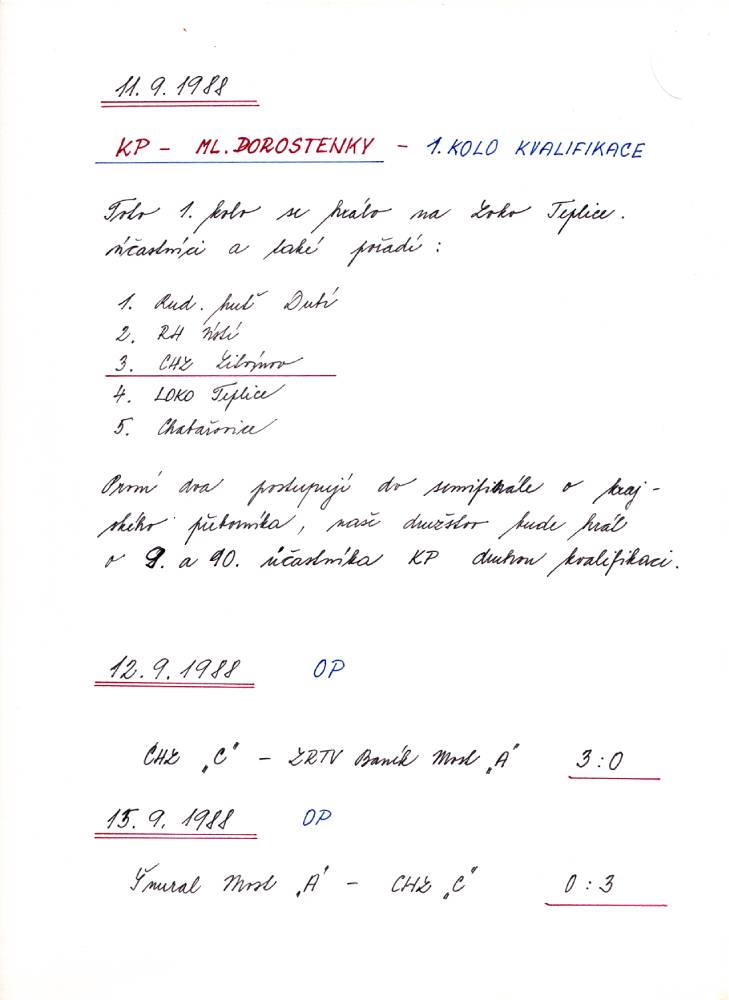 11. 9. 1988
KP - ML. DOROSTENKY - 1. KOLO KVALIFIKACE
Toto 1. kolo se hrálo na Loko Teplice.
účastníci a také pořadí :
1. Rud. huť Dubí
2. RH Ústí
3. CHZ Litvínov
4. LOKO Teplice
5. Chabařovice
První dva postupují do semifinále o kraj-
ského přeborníka, naše družstvo bude hrát
o 9. a 10. účastníka KP druhou kvalifikaci.
12. 9. 1988 OP
CHZ „C" - ZRTV Baník Most „A" 3 : 0
15. 9. 1988 OP
Most „A" - CHZ „C" 0 : 3